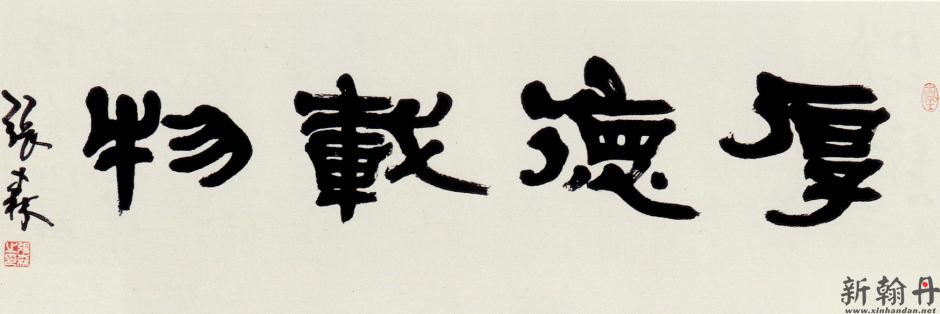 厚德载物
张森
新翰丹
www.xinhandan.net